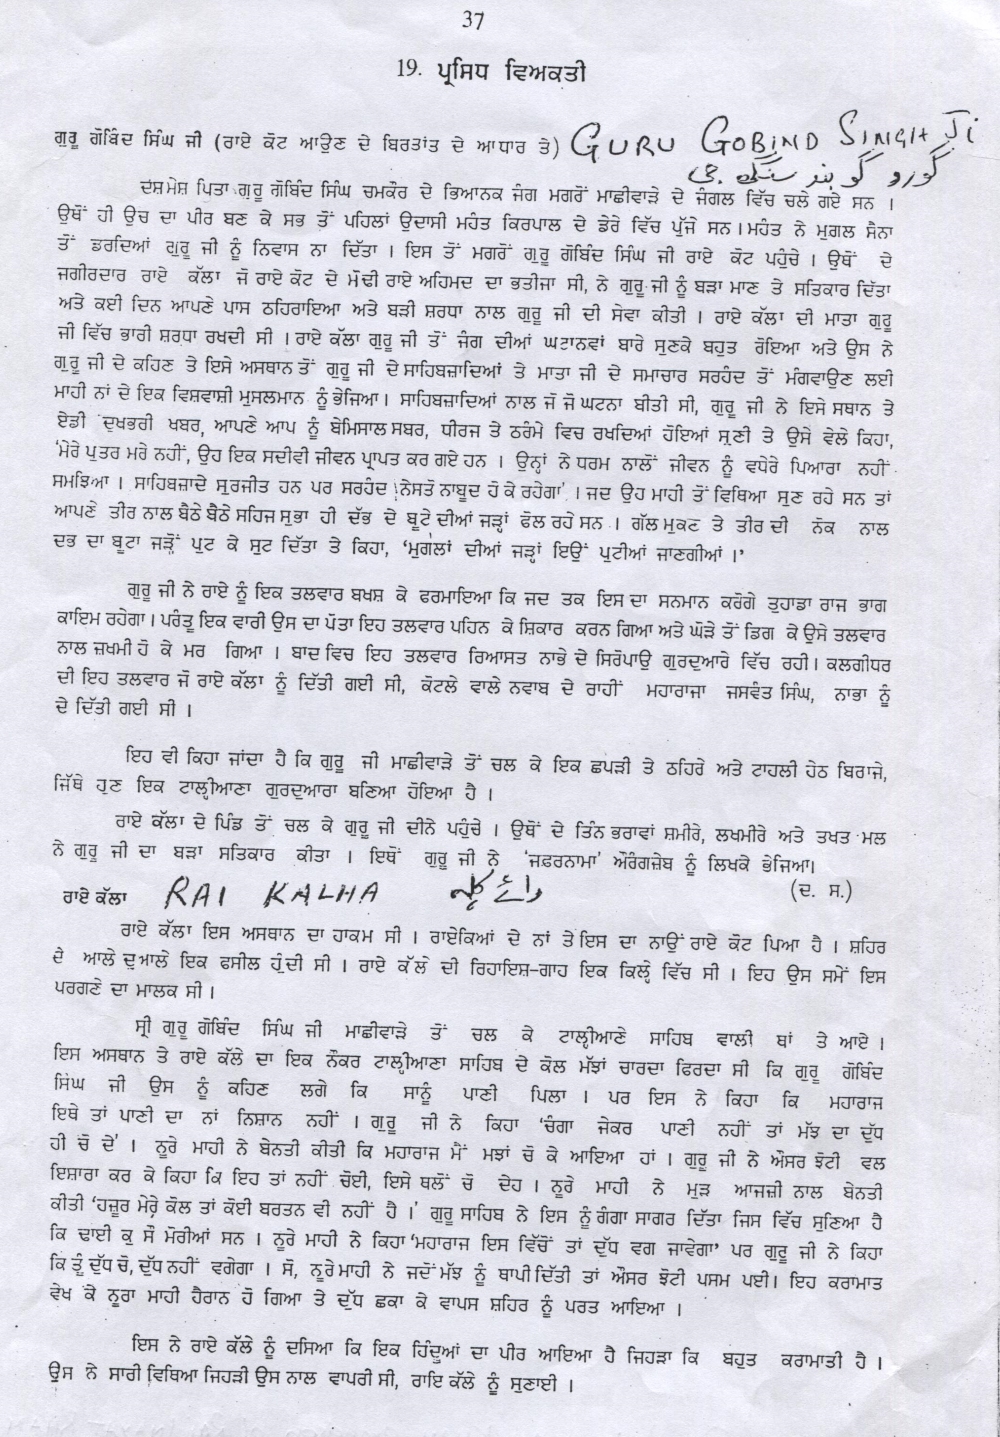 37
19. ਪ੍ਰਸਿਧ ਵਿਅਕਤੀ
ਗੁਰੂ ਗੋਬਿੰਦ ਸਿੰਘ ਜੀ (ਰਾਏ ਕੋਟ ਆਉਣ ਦੇ ਬਿਰਤਾਂਤ ਦੇ ਆਧਾਰ ਤੇ) GURU GOBIND SINGH Ji
گورو گوبند سنگھ جی
ਦਸ਼ਮੇਸ਼ ਪਿਤਾ ਗੁਰੂ ਗੋਬਿੰਦ ਸਿੰਘ ਚਮਕੌਰ ਦੇ ਭਿਆਨਕ ਜੰਗ ਮਗਰੋਂ ਮਾਛੀਵਾੜੇ ਦੇ ਜੰਗਲ ਵਿੱਚ ਚਲੇ ਗਏ ਸਨ ।
ਉਥੋਂ ਹੀ ਉਚ ਦਾ ਪੀਰ ਬਣ ਕੇ ਸਭ ਤੋਂ ਪਹਿਲਾਂ ਉਦਾਸੀ ਮਹੰਤ ਕਿਰਪਾਲ ਦੇ ਡੇਰੇ ਵਿੱਚ ਪੁੱਜੇ ਸਨ।ਮਹੰਤ ਨੇ ਮੁਗਲ ਸੈਨਾ
ਤੋਂ ਡਰਦਿਆਂ ਗੁਰੂ ਜੀ ਨੂੰ ਨਿਵਾਸ ਨਾ ਦਿੱਤਾ । ਇਸ ਤੋਂ ਮਗਰੋਂ ਗੁਰੂ ਗੋਬਿੰਦ ਸਿੰਘ ਜੀ ਰਾਏ ਕੋਟ ਪਹੁੰਚੇ । ਉਥੋਂ ਦੇ
ਜਗੀਰਦਾਰ ਰਾਏ ਕੱਲਾ ਜੋ ਰਾਏ ਕੋਟ ਦੇ ਮੋਢੀ ਰਾਏ ਅਹਿਮਦ ਦਾ ਭਤੀਜਾ ਸੀ, ਨੇ ਗੁਰੂ ਜੀ ਨੂੰ ਬੜਾ ਮਾਣ ਤੇ ਸਤਿਕਾਰ ਦਿੱਤਾ
ਅਤੇ ਕਈ ਦਿਨ ਆਪਣੇ ਪਾਸ ਠਹਿਰਾਇਆ ਅਤੇ ਬੜੀ ਸ਼ਰਧਾ ਨਾਲ ਗੁਰੂ ਜੀ ਦੀ ਸੇਵਾ ਕੀਤੀ । ਰਾਏ ਕੱਲਾ ਦੀ ਮਾਤਾ ਗੁਰੂ
ਜੀ ਵਿੱਚ ਭਾਰੀ ਸ਼ਰਧਾ ਰਖਦੀ ਸੀ ।ਰਾਏ ਕੱਲਾ ਗੁਰੂ ਜੀ ਤੋਂ ਜੰਗ ਦੀਆਂ ਘਟਾਨਵਾਂ ਬਾਰੇ ਸੁਣਕੇ ਬਹੁਤ ਰੋਇਆ ਅਤੇ ਉਸ ਨੇ
ਗੁਰੂ ਜੀ ਦੇ ਕਹਿਣ ਤੇ ਇਸੇ ਅਸਥਾਨ ਤੋਂ ਗੁਰੂ ਜੀ ਦੇ ਸਾਹਿਬਜ਼ਾਦਿਆਂ ਤੇ ਮਾਤਾ ਜੀ ਦੇ ਸਮਾਚਾਰ ਸਰਹੰਦ ਤੋਂ ਮੰਗਵਾਉਣ ਲਈ
ਮਾਹੀ ਨਾਂ ਦੇ ਇਕ ਵਿਸ਼ਵਾਸ਼ੀ ਮੁਸਲਮਾਨ ਨੂੰ ਭੇਜਿਆ। ਸਾਹਿਬਜ਼ਾਦਿਆਂ ਨਾਲ ਜੋ ਜੋ ਘਟਨਾ ਬੀਤੀ ਸੀ, ਗੁਰੂ ਜੀ ਨੇ ਇਸੇ ਸਥਾਨ ਤੇ
ਏਡੀ ਦੁਖਭਰੀ ਖਬਰ, ਆਪਣੇ ਆਪ ਨੂੰ ਬੇਮਿਸਾਲ ਸਬਰ, ਧੀਰਜ ਤੇ ਠਰੰਮੇ ਵਿਚ ਰਖਦਿਆਂ ਹੋਇਆਂ ਸੁਣੀ ਤੇ ਉਸੇ ਵੇਲੇ ਕਿਹਾ,
'ਮੇਰੇ ਪੁਤਰ ਮਰੇ ਨਹੀਂ, ਉਹ ਇਕ ਸਦੀਵੀ ਜੀਵਨ ਪ੍ਰਾਪਤ ਕਰ ਗਏ ਹਨ । ਉਨ੍ਹਾਂ ਨੇ ਧਰਮ ਨਾਲੋਂ ਜੀਵਨ ਨੂੰ ਵਧੇਰੇ ਪਿਆਰਾ ਨਹੀਂ
ਸਮਝਿਆ । ਸਾਹਿਬਜ਼ਾਦੇ ਸੁਰਜੀਤ ਹਨ ਪਰ ਸਰਹੰਦ ਨੇਸਤੋ ਨਾਬੂਦ ਹੋ ਕੇ ਰਹੇਗਾ' । ਜਦ ਉਹ ਮਾਹੀ ਤੋਂ ਵਿਥਿਆ ਸੁਣ ਰਹੇ ਸਨ ਤਾਂ
ਆਪਣੇ ਤੀਰ ਨਾਲ ਬੈਠੇ ਬੈਠੇ ਸਹਿਜ ਸੁਭਾ ਹੀ ਦੱਭ ਦੇ ਬੂਟੇ ਦੀਆਂ ਜੜ੍ਹਾਂ ਫੋਲ ਰਹੇ ਸਨ । ਗੱਲ ਮੁਕਣ ਤੇ ਤੀਰ ਦੀ ਨੋਕ ਨਾਲ
ਦਭ ਦਾ ਬੂਟਾ ਜੜ੍ਹੋਂ ਪੁਟ ਕੇ ਸੁਟ ਦਿੱਤਾ ਤੇ ਕਿਹਾ, 'ਮੁਗਲਾਂ ਦੀਆਂ ਜੜ੍ਹਾਂ ਇਉਂ ਪੁਟੀਆਂ ਜਾਣਗੀਆਂ ।'
ਗੁਰੂ ਜੀ ਨੇ ਰਾਏ ਨੂੰ ਇਕ ਤਲਵਾਰ ਬਖਸ਼ ਕੇ ਫਰਮਾਇਆ ਕਿ ਜਦ ਤਕ ਇਸ ਦਾ ਸਨਮਾਨ ਕਰੋਗੇ ਤੁਹਾਡਾ ਰਾਜ ਭਾਗ
ਕਾਇਮ ਰਹੇਗਾ।ਪਰੰਤੂ ਇਕ ਵਾਰੀ ਉਸ ਦਾ ਪੋਤਾ ਇਹ ਤਲਵਾਰ ਪਹਿਨ ਕੇ ਸ਼ਿਕਾਰ ਕਰਨ ਗਿਆ ਅਤੇ ਘੋੜੇ ਤੋਂ ਡਿਗ ਕੇ ਉਸੇ ਤਲਵਾਰ
ਨਾਲ ਜ਼ਖਮੀ ਹੋ ਕੇ ਮਰ ਗਿਆ । ਬਾਦ ਵਿਚ ਇਹ ਤਲਵਾਰ ਰਿਆਸਤ ਨਾਭੇ ਦੇ ਸਿਰੋਪਾਉ ਗੁਰਦੁਆਰੇ ਵਿੱਚ ਰਹੀ। ਕਲਗੀਧਰ
ਦੀ ਇਹ ਤਲਵਾਰ ਜੋ ਰਾਏ ਕੱਲਾ ਨੂੰ ਦਿੱਤੀ ਗਈ ਸੀ, ਕੋਟਲੇ ਵਾਲੇ ਨਵਾਬ ਦੇ ਰਾਹੀਂ ਮਹਾਰਾਜਾ ਜਸਵੰਤ ਸਿੰਘ, ਨਾਭਾ ਨੂੰ
ਦੇ ਦਿੱਤੀ ਗਈ ਸੀ ।
ਇਹ ਵੀ ਕਿਹਾ ਜਾਂਦਾ ਹੈ ਕਿ ਗੁਰੂ ਜੀ ਮਾਛੀਵਾੜੇ ਤੋਂ ਚਲ ਕੇ ਇਕ ਛਪੜੀ ਤੇ ਠਹਿਰੇ ਅਤੇ ਟਾਹਲੀ ਹੇਠ ਬਿਰਾਜੇ,
ਜਿੱਥੇ ਹੁਣ ਇਕ ਟਾਲ੍ਹੀਆਣਾ ਗੁਰਦੁਆਰਾ ਬਣਿਆ ਹੋਇਆ ਹੈ ।
ਰਾਏ ਕੱਲਾ ਦੇ ਪਿੰਡ ਤੋਂ ਚਲ ਕੇ ਗੁਰੂ ਜੀ ਦੀਨੇ ਪਹੁੰਚੇ । ਉਥੋਂ ਦੇ ਤਿੰਨ ਭਰਾਵਾਂ ਸ਼ਮੀਰੇ, ਲਖਮੀਰੇ ਅਤੇ ਤਖਤ ਮਲ
ਨੇ ਗੁਰੂ ਜੀ ਦਾ ਬੜਾ ਸਤਿਕਾਰ ਕੀਤਾ । ਇਥੋਂ ਗੁਰੂ ਜੀ ਨੇ 'ਜਫ਼ਰਨਾਮਾ' ਔਰੰਗਜ਼ੇਬ ਨੂੰ ਲਿਖਕੇ ਭੇਜਿਆ।
ਰਾਏ ਕੱਲਾ RAI KALHA رائے کلہ (ਦ. ਸ.)
ਰਾਏ ਕੱਲਾ ਇਸ ਅਸਥਾਨ ਦਾ ਹਾਕਮ ਸੀ । ਰਾਏਕਿਆਂ ਦੇ ਨਾਂ ਤੇ ਇਸ ਦਾ ਨਾਉਂ ਰਾਏ ਕੋਟ ਪਿਆ ਹੈ । ਸ਼ਹਿਰ
ਦੇ ਆਲੇ ਦੁਆਲੇ ਇਕ ਫਸੀਲ ਹੁੰਦੀ ਸੀ । ਰਾਏ ਕੱਲੇ ਦੀ ਰਿਹਾਇਸ਼-ਗਾਹ ਇਕ ਕਿਲ੍ਹੇ ਵਿੱਚ ਸੀ । ਇਹ ਉਸ ਸਮੇਂ ਇਸ
ਪਰਗਣੇ ਦਾ ਮਾਲਕ ਸੀ ।
ਸ੍ਰੀ ਗੁਰੂ ਗੋਬਿੰਦ ਸਿੰਘ ਜੀ ਮਾਛੀਵਾੜੇ ਤੋਂ ਚਲ ਕੇ ਟਾਲ੍ਹੀਆਣੇ ਸਾਹਿਬ ਵਾਲੀ ਥਾਂ ਤੇ ਆਏ ।
ਇਸ ਅਸਥਾਨ ਤੇ ਰਾਏ ਕੱਲੇ ਦਾ ਇਕ ਨੌਕਰ ਟਾਲ੍ਹੀਆਣਾ ਸਾਹਿਬ ਦੇ ਕੋਲ ਮੱਝਾਂ ਚਾਰਦਾ ਫਿਰਦਾ ਸੀ ਕਿ ਗੁਰੂ ਗੋਬਿੰਦ
ਸਿੰਘ ਜੀ ਉਸ ਨੂੰ ਕਹਿਣ ਲਗੇ ਕਿ ਸਾਨੂੰ ਪਾਣੀ ਪਿਲਾ । ਪਰ ਇਸ ਨੇ ਕਿਹਾ ਕਿ ਮਹਾਰਾਜ
ਇਥੇ ਤਾਂ ਪਾਣੀ ਦਾ ਨਾਂ ਨਿਸ਼ਾਨ ਨਹੀਂ । ਗੁਰੂ ਜੀ ਨੇ ਕਿਹਾ 'ਚੰਗਾ ਜੇਕਰ ਪਾਣੀ ਨਹੀਂ ਤਾਂ ਮੱਝ ਦਾ ਦੁੱਧ
ਹੀ ਚੋ ਦੇ' । ਨੂਰੇ ਮਾਹੀ ਨੇ ਬੇਨਤੀ ਕੀਤੀ ਕਿ ਮਹਾਰਾਜ ਮੈਂ ਮਝਾਂ ਚੋ ਕੇ ਆਇਆ ਹਾਂ । ਗੁਰੂ ਜੀ ਨੇ ਔਸਰ ਝੋਟੀ ਵਲ
ਇਸ਼ਾਰਾ ਕਰ ਕੇ ਕਿਹਾ ਕਿ ਇਹ ਤਾਂ ਨਹੀਂ ਚੋਈ, ਇਸੇ ਥਲੋਂ ਚੋ ਦੇਹ । ਨੂਰੇ ਮਾਹੀ ਨੇ ਮੁੜ ਆਜਜ਼ੀ ਨਾਲ ਬੇਨਤੀ
ਕੀਤੀ 'ਹਜ਼ੂਰ ਮੇਰੇ ਕੋਲ ਤਾਂ ਕੋਈ ਬਰਤਨ ਵੀ ਨਹੀਂ ਹੈ ।' ਗੁਰੂ ਸਾਹਿਬ ਨੇ ਇਸ ਨੂੰ ਗੰਗਾ ਸਾਗਰ ਦਿੱਤਾ ਜਿਸ ਵਿੱਚ ਸੁਣਿਆ ਹੈ
ਕਿ ਢਾਈ ਕੁ ਸੌ ਮੋਰੀਆਂ ਸਨ । ਨੂਰੇ ਮਾਹੀ ਨੇ ਕਿਹਾ 'ਮਹਾਰਾਜ ਇਸ ਵਿੱਚੋਂ ਤਾਂ ਦੁੱਧ ਵਗ ਜਾਵੇਗਾ' ਪਰ ਗੁਰੂ ਜੀ ਨੇ ਕਿਹਾ
ਕਿ ਤੂੰ ਦੁੱਧ ਚੋ, ਦੁੱਧ ਨਹੀਂ ਵਗੇਗਾ । ਸੋ, ਨੂਰੇ ਮਾਹੀ ਨੇ ਜਦੋਂ ਮੱਝ ਨੂੰ ਥਾਪੀ ਦਿੱਤੀ ਤਾਂ ਔਸਰ ਝੋਟੀ ਪਸਮ ਪਈ। ਇਹ ਕਰਾਮਾਤ
ਵੇਖ ਕੇ ਨੂਰਾ ਮਾਹੀ ਹੈਰਾਨ ਹੋ ਗਿਆ ਤੇ ਦੁੱਧ ਛਕਾ ਕੇ ਵਾਪਸ ਸ਼ਹਿਰ ਨੂੰ ਪਰਤ ਆਇਆ ।
ਇਸ ਨੇ ਰਾਏ ਕੱਲੇ ਨੂੰ ਦਸਿਆ ਕਿ ਇਕ ਹਿੰਦੂਆਂ ਦਾ ਪੀਰ ਆਇਆ ਹੈ ਜਿਹੜਾ ਕਿ ਬਹੁਤ ਕਰਾਮਾਤੀ ਹੈ ।
ਉਸ ਨੇ ਸਾਰੀ ਵਿਥਿਆ ਜਿਹੜੀ ਉਸ ਨਾਲ ਵਾਪਰੀ ਸੀ, ਰਾਇ ਕੱਲੇ ਨੂੰ ਸੁਣਾਈ ।